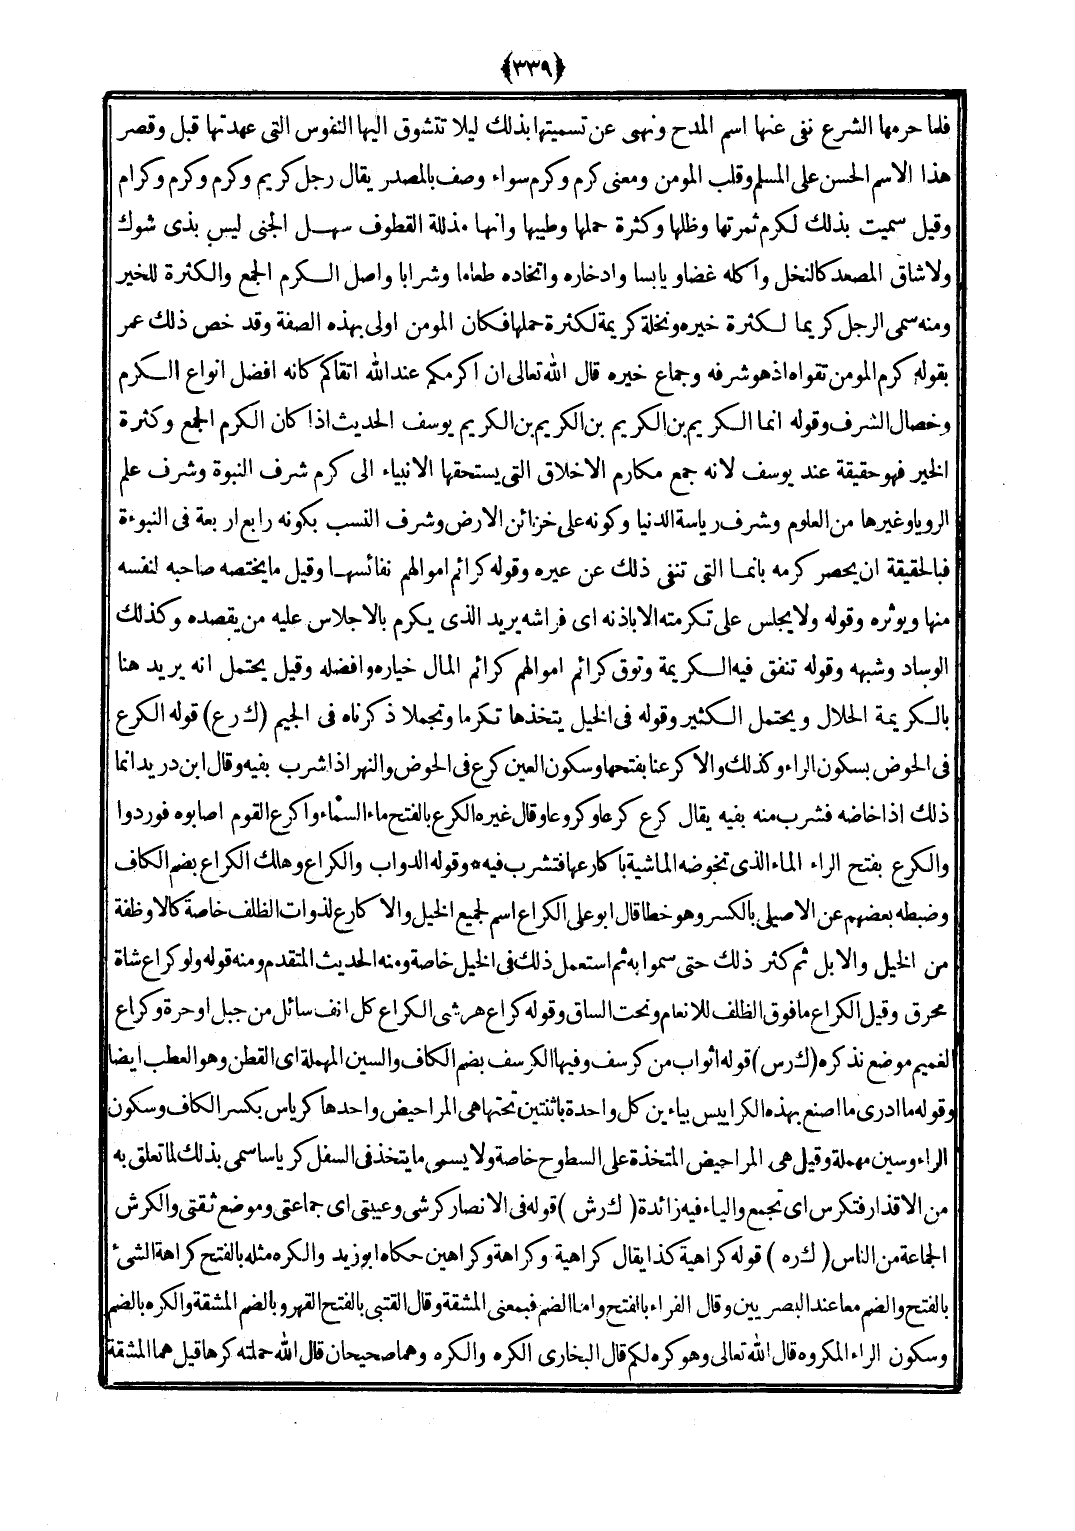 ﴿٣٣٩﴾
فلما حرمها الشرع نفى عنها اسم المدح ونهى عن تسميتها بذلك ليلا تتشوق اليها النفوس التى عهدتها قبل وقصر
هذا الاسم الحسن على المسلم وقلب المومن ومعنى كرم وكرم سواء وصف بالمصدر يقال رجل كريم وكرم وكرم وكرام
وقيل سميت بذلك لكرم ثمرتها وظلها وكثرة حملها وطيبها وانها مذللة القطوف سهل الجنى ليس بذى شوك
ولا شاق المصعد كالنخل واكله غضا ويابسا وادخاره واتخاده طعاما وشرابا واصل الكرم الجمع والكثرة للخير
ومنه سمى الرجل كريما لكثرة خيره ونخلة كريمة لكثرة حملها فكان المومن اولى بهذه الصفة وقد خص ذلك عمر
بقوله كرم المومن تقواه اذ هو شرفه وجماع خيره قال الله تعالى ان اكرمكم عند الله اتقاكم كانه افضل انواع الكرم
وخصال الشرف وقوله انما الكريم بن الكريم بن الكريم بن الكريم يوسف الحديث اذا كان الكرم الجمع وكثرة
الخير فهو حقيقة عند يوسف لانه جمع مكارم الاخلاق التى يستحقها الانبياء الى كرم شرف النبوة وشرف علم
الرويا وغيرها من العلوم وشرف رياسة الدنيا وكونه على خزائن الارض وشرف النسب بكونه رابع اربعة فى النبوءة
فبالحقيقة ان يحصر كرمه بانما التى تنفى ذلك عن غيره وقوله كرائم اموالهم نفائسها وقيل ما يختصه صاحبه لنفسه
منها ويوثره وقوله ولا يجلس على تكرمته الا باذنه اى فراشه يريد الذى يكرم بالاجلاس عليه من يقصده وكذلك
الوساد وشبهه وقوله تنفق فيه الكريمة وتوق كرائم اموالهم كرائم المال خياره وافضله وقيل يحتمل انه يريد هنا
بالكريمة الحلال ويحتمل الكثير وقوله فى الخيل يتخذها تكرما وتجملا ذكرناه فى الجيم (ك رع) قوله الكرع
فى الحوض بسكون الراء وكذلك والا كرعنا بفتحها وسكون العين كرع فى الحوض والنهر اذا شرب بفيه وقال ابن دريد انما
ذلك اذا خاضه فشرب منه بفيه يقال كرع كرعا وكروعا وقال غيره الكرع بالفتح ماء السماء واكرع القوم اصابوه فوردوا
والكرع بفتح الراء الماء الذى تخوضه الماشية باكارعها فتشرب فيه * وقوله الدواب والكراع وهلك الكراع بضم الكاف
وضبطه بعضهم عن الاصيلى بالكسر وهو خطا قال ابو على الكراع اسم لجميع الخيل والاكارع لذوات الظلف خاصة كالاوظفة
من الخيل والابل ثم كثر ذلك حتى سموا به ثم استعمل ذلك فى الخيل خاصة ومنه الحديث المتقدم ومنه قوله ولو كراع شاة
محرق وقيل الكراع ما فوق الظلف للانعام وتحت الساق وقوله كراع هرشى الكراع كل انف سائل من جبل او حرة وكراع
الغميم موضع نذكره (ك رس) قوله اثواب من كرسف وفيها الكرسف بضم الكاف والسين المهملة اى القطن وهو العطب ايضا
وقوله ما ادرى ما اصنع بهذه الكراييس بياءين كل واحدة باثنتين تحتها هى المراحيض واحدها كرياس بكسر الكاف وسكون
الراء وسين مهملة وقيل هى المراحيض المتخذة على السطوح خاصة ولا يسمى ما يتخذ فى السفل كرياسا سمى بذلك لما تعلق به
من الاقذار فتكرس اى تجمع والياء فيه زائدة ( ك رش ) قوله فى الانصار كرشى وعيبتى اى جماعتى وموضع ثقتى والكرش
الجماعة من الناس ( ك ره ) قوله كراهية كذا يقال كراهية وكراهة وكراهين حكاه ابو زيد والكره مثله بالفتح كراهة الشئ
بالفتح والضم معا عند البصريين وقال الفراء بالفتح واما الضم فبمعنى المشقة وقال القتبى بالفتح القهر وبالضم المشقة والكره بالضم
وسكون الراء المكروه قال الله تعالى وهو كره لكم قال البخارى الكره والكره وهما صحيحان قال الله حملته كرها قيل هما المشقة